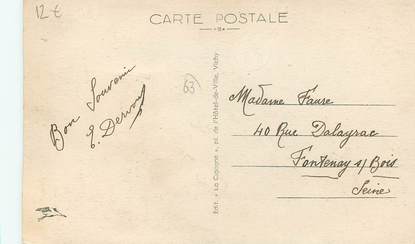 12 €
CARTE POSTALE
Bon Souvenir
E. Dervou
63
Edit. « La Cigogne », pl. de l'Hôtel-de-Ville, Vichy
Madame Faure
40 Rue Dalayrac
Fontenay s/ Bois
Seine